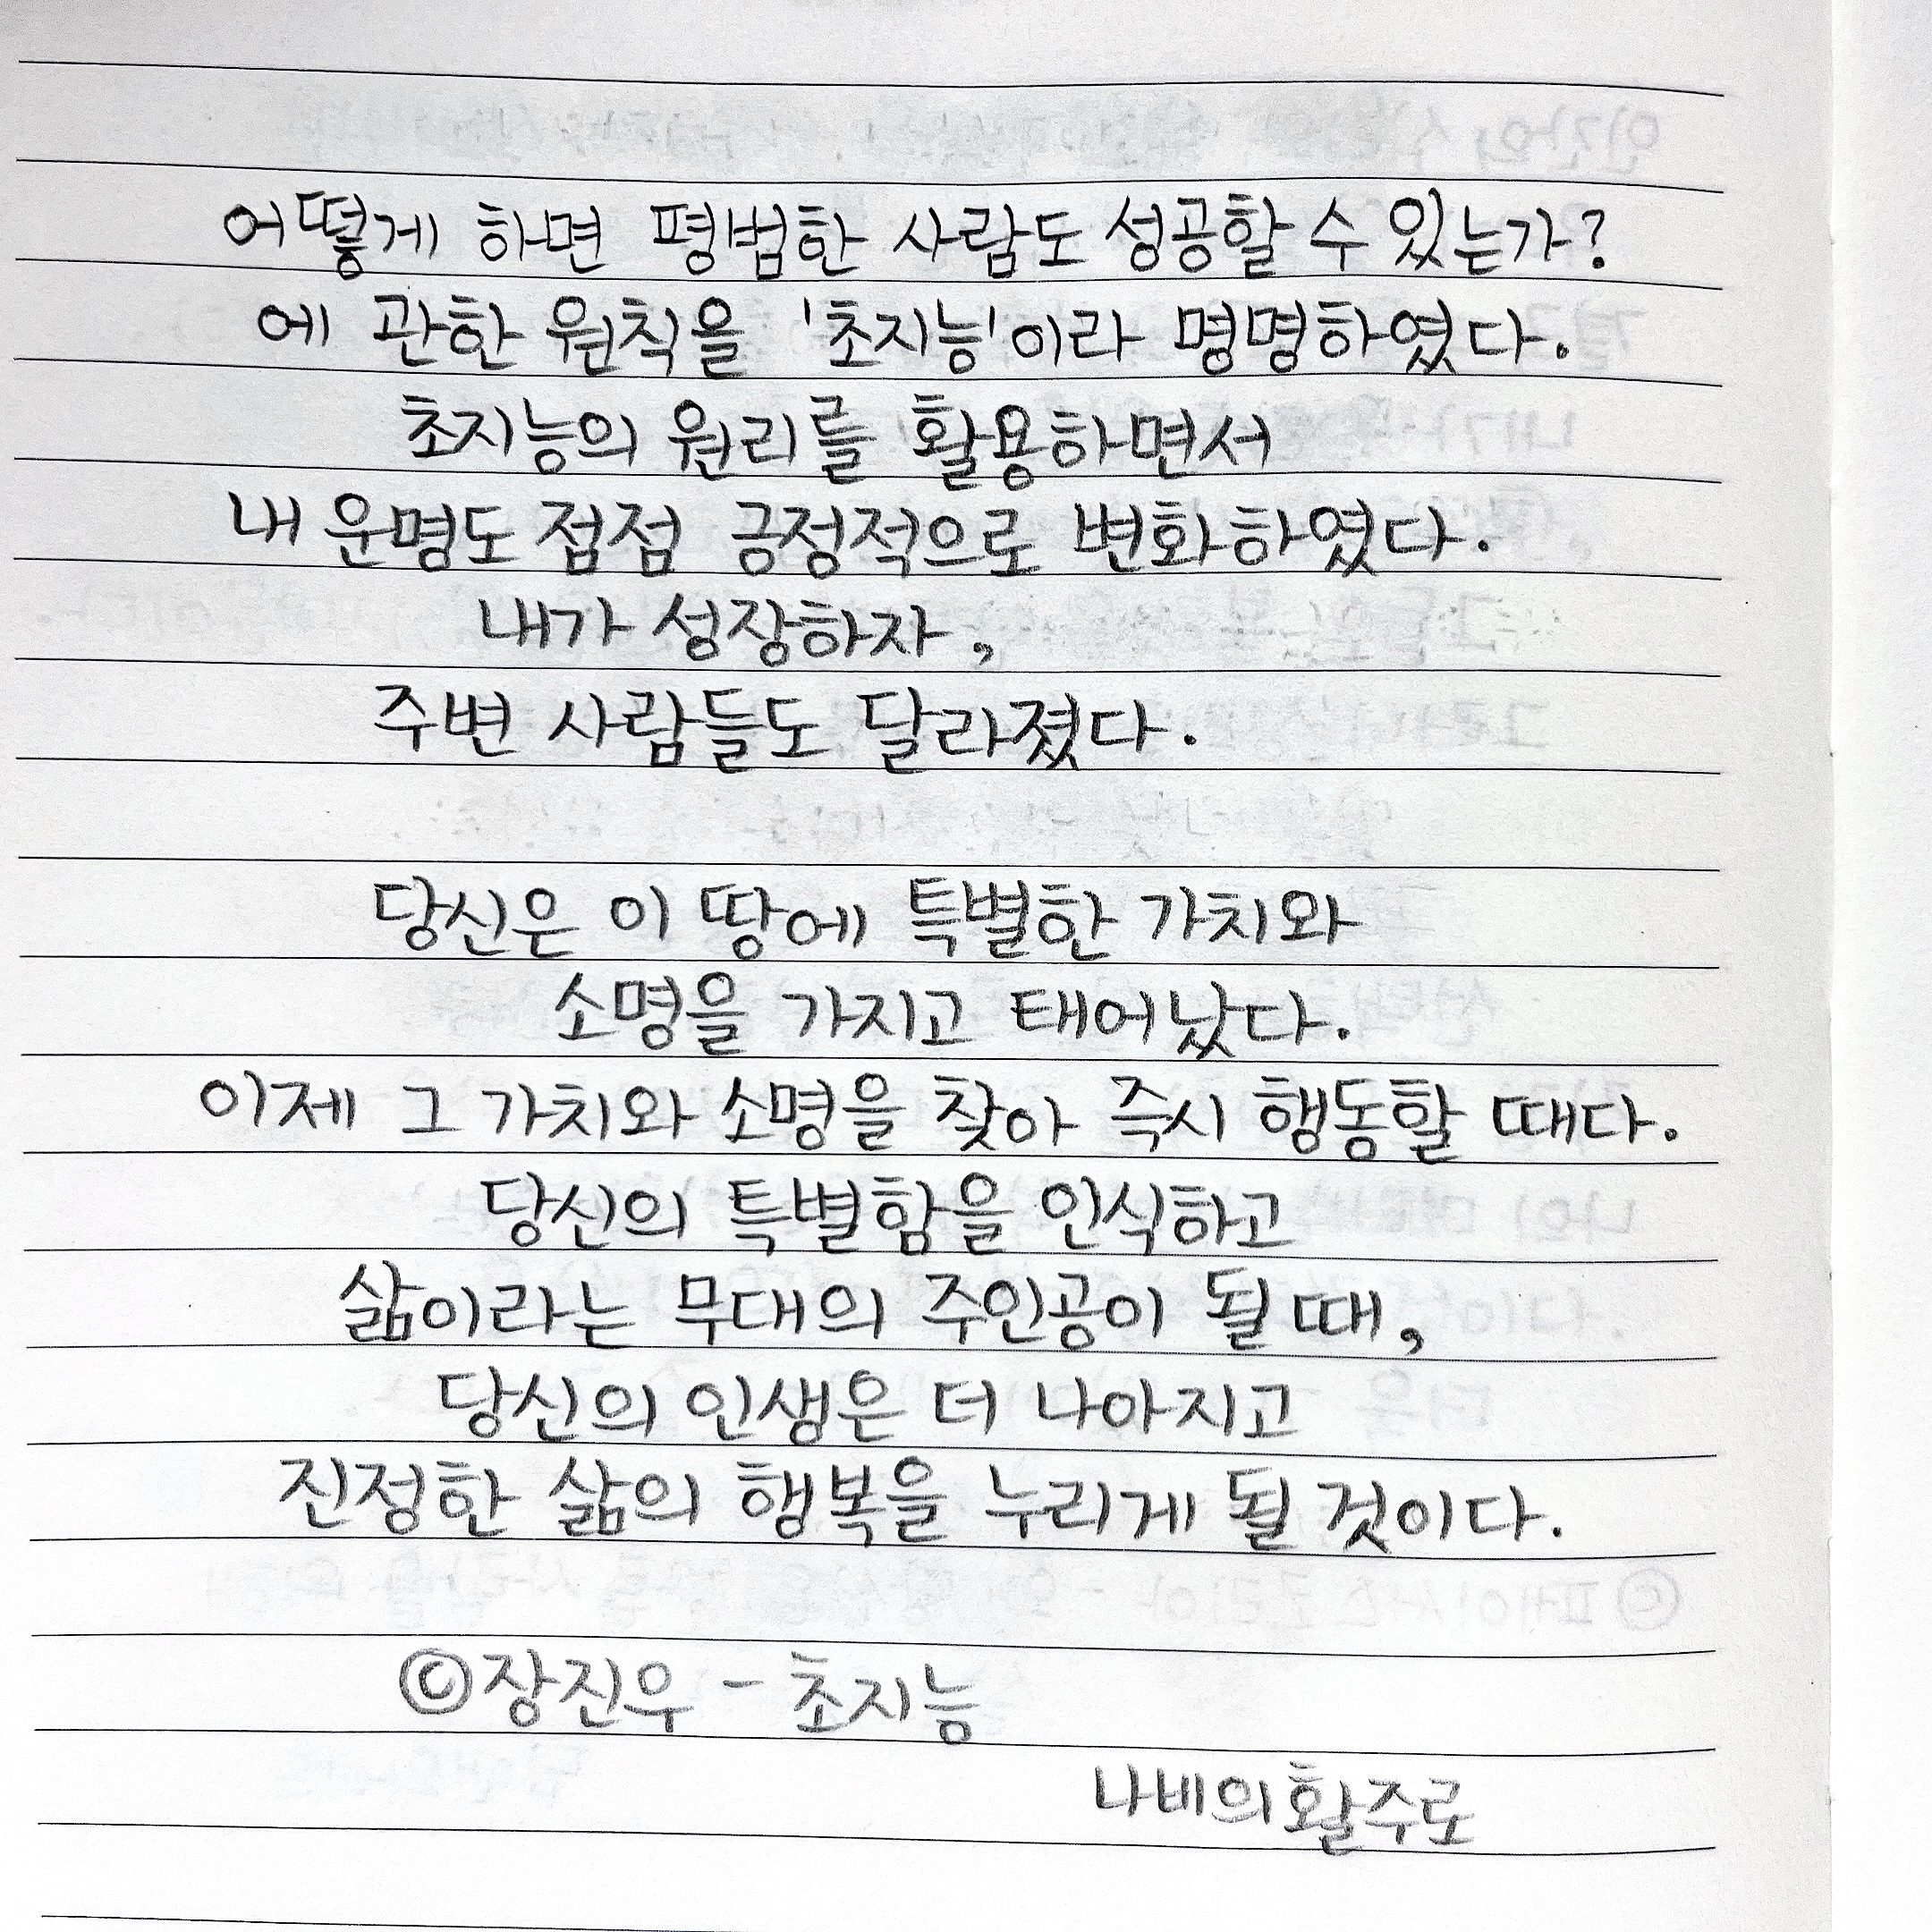 어떻게 하면 평범한 사람도 성공할 수 있는가?
에 관한 원칙을 '초지능'이라 명명하였다.
초지능의 원리를 활용하면서
내 운명도 점점 긍정적으로 변화하였다.
내가 성장하자,
주변 사람들도 달라졌다.
당신은 이 땅에 특별한 가치와
소명을 가지고 태어났다.
이제 그 가치와 소명을 찾아 즉시 행동할 때다.
당신의 특별함을 인식하고
삶이라는 무대의 주인공이 될 때,
당신의 인생은 더 나아지고
진정한 삶의 행복을 누리게 될 것이다.
©장진우 - 초지능
나비의활주로